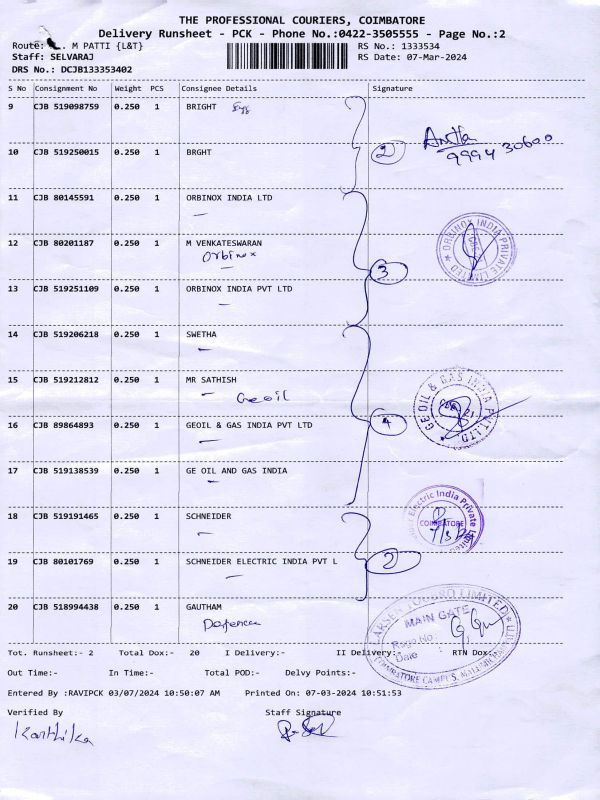 THE PROFESSIONAL COURIERS, COIMBATORE
Delivery Runsheet - PCK - Phone No.:0422-3505555 - Page No.:2
Route: M PATTI {L&T}
RS No.: 1333534
Staff: SELVARAJ
RS Date: 07-Mar-2024
DRS No.: DCJB133353402
S No Consignment No Weight PCS Consignee Details Signature
9 CJB 519098759 0.250 1 BRIGHT
Anitha
9994 30600
10 CJB 519250015 0.250 1 BRGHT
2
11 CJB 80145591 0.250 1 ORBINOX INDIA LTD
12 CJB 80201187 0.250 1 M VENKATESWARAN
Orbinox
3
ORBINOX INDIA PRIVATE LIMITED
13 CJB 519251109 0.250 1 ORBINOX INDIA PVT LTD
14 CJB 519206218 0.250 1 SWETHA
15 CJB 519212812 0.250 1 MR SATHISH
Geoil
GE OIL & GAS INDIA PVT. LTD
16 CJB 89864893 0.250 1 GEOIL & GAS INDIA PVT LTD
4
17 CJB 519138539 0.250 1 GE OIL AND GAS INDIA
18 CJB 519191465 0.250 1 SCHNEIDER
Electric India Private Limited
COIMBATORE
19 CJB 80101769 0.250 1 SCHNEIDER ELECTRIC INDIA PVT L
2
20 CJB 518994438 0.250 1 GAUTHAM
Defence
LARSEN TOUBRO LIMITED
MAIN GATE
Regs.No:
Date :
COIMBATORE CAMPUS,
Tot. Runsheet:- 2 Total Dox:- 20 I Delivery:- II Delivery:- RTN Dox:
Out Time:- In Time:- Total POD:- Delvy Points:-
Entered By :RAVIPCK 03/07/2024 10:50:07 AM Printed On: 07-03-2024 10:51:53
Verified By Staff Signature
Karthika